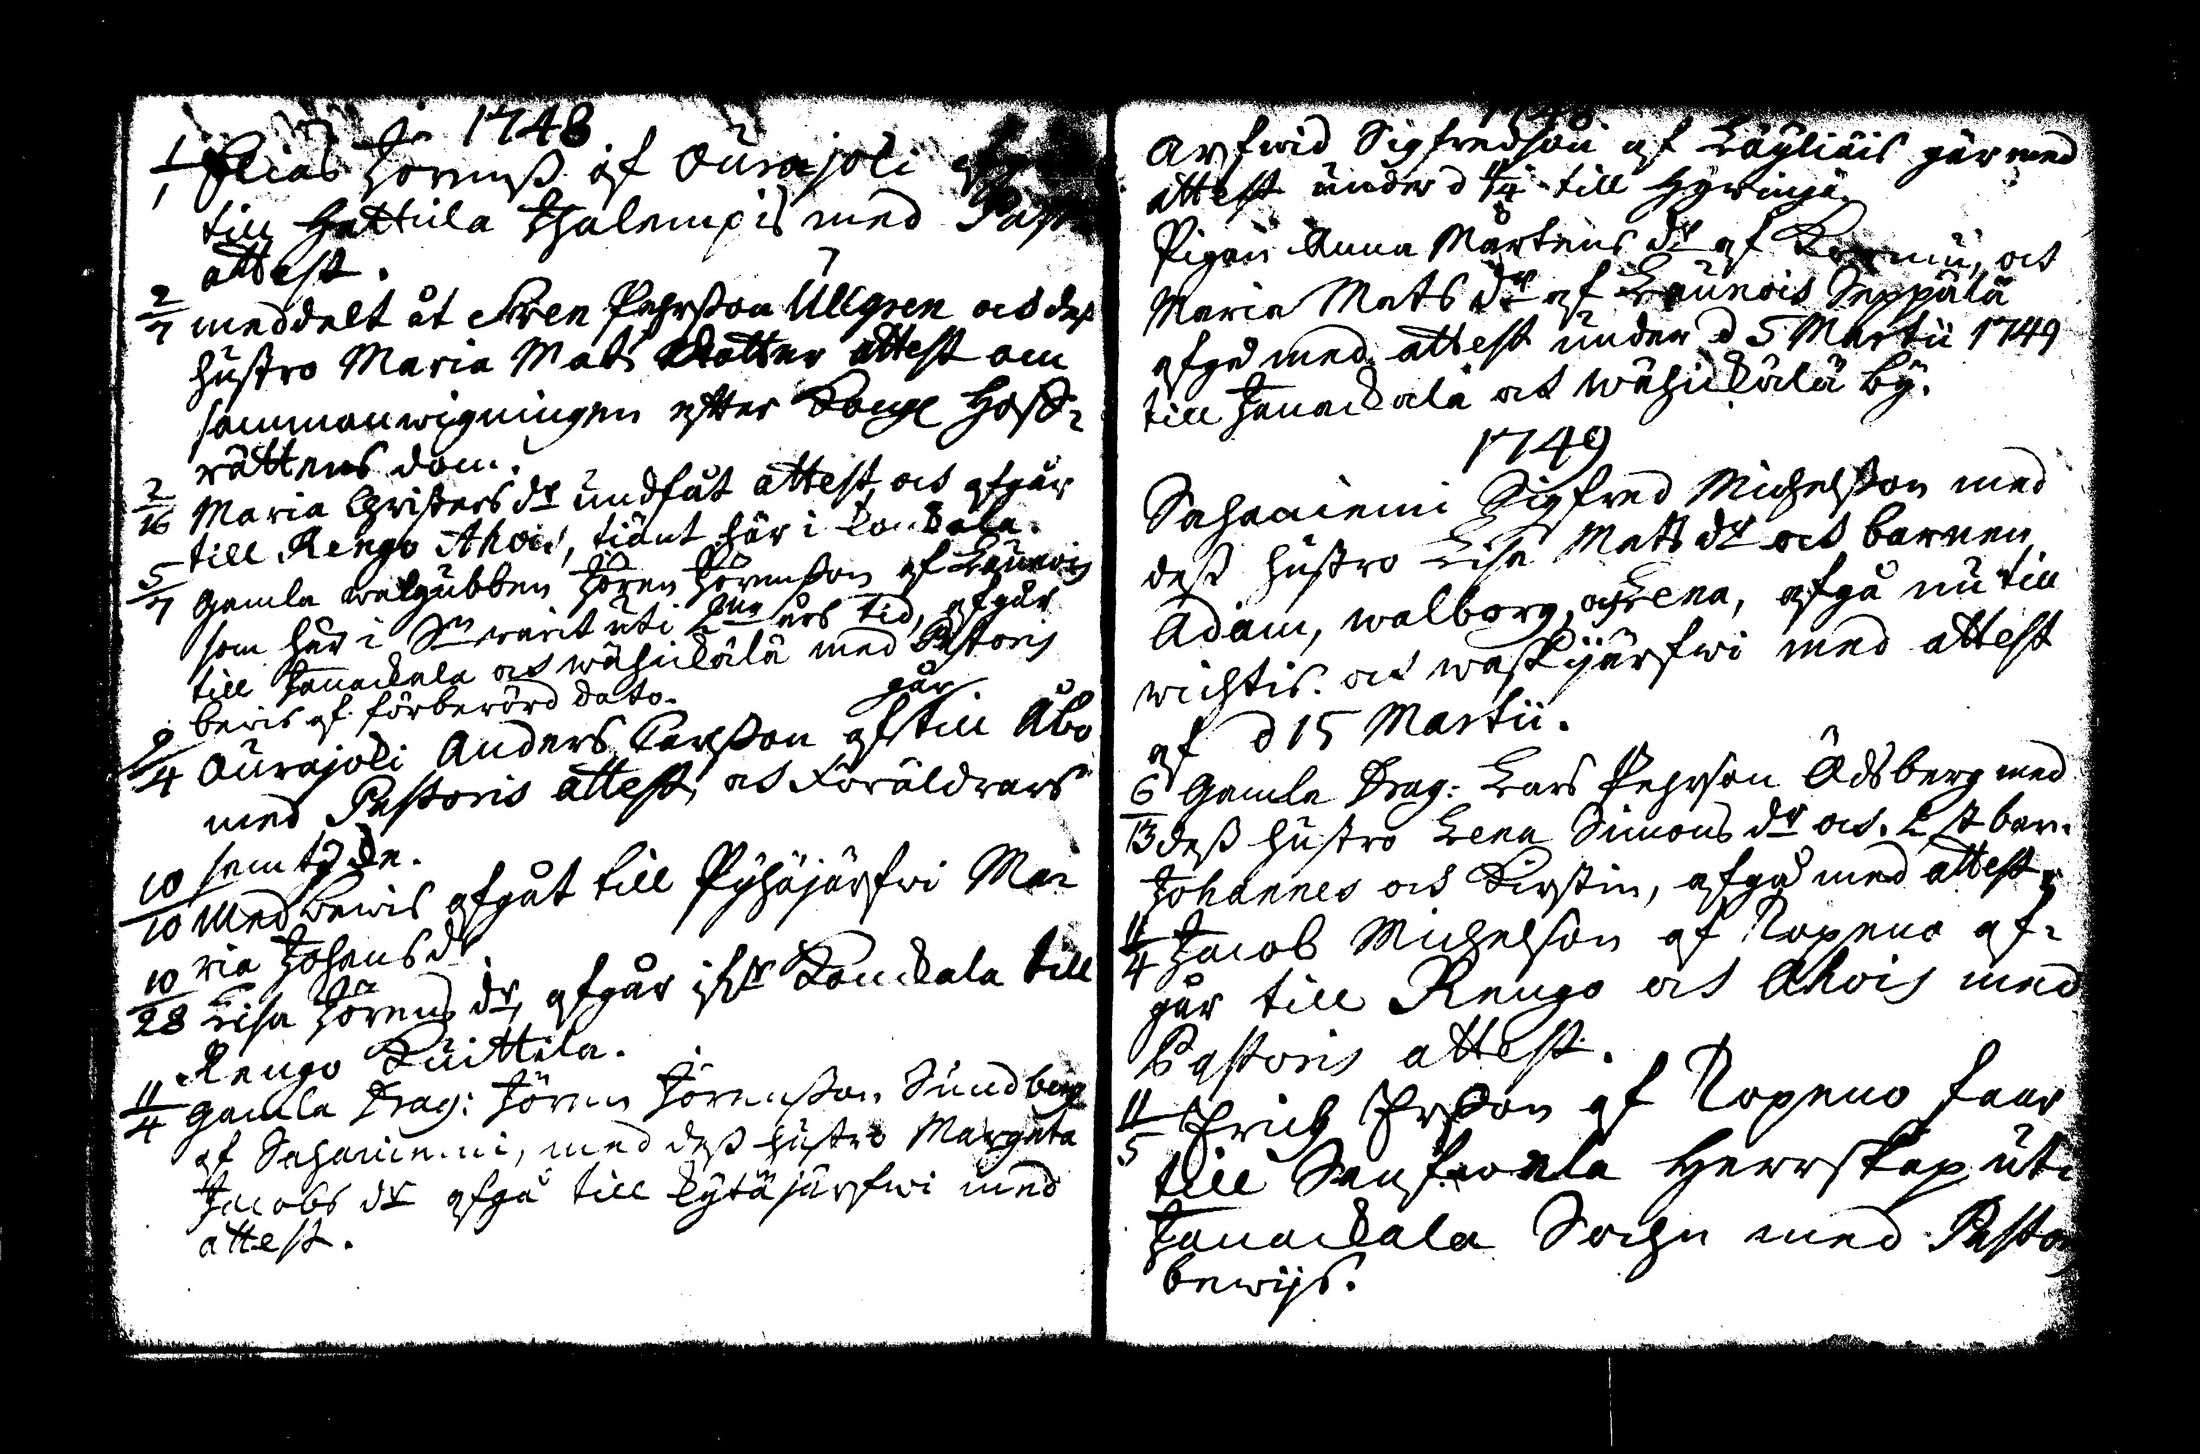 1748
1/1 Elias Jörenss. af Ourajoki
till Hattula Thalempis med Past
attest.
2/7 meddelt åt Sven Pehrsson Ullgren och dess
hustro Maria Mats dotter attest om
sammanwigningen efter Kongl Hoff-
rättens dom.
2/16 Maria Christersdr undfåt attest, och afgår
till Rengo Ahois, tiänt här i Konkala.
5/7 Gamla walgubben Jören Jörensson af Launois
som här i Sn varit uti 2ne års tid, afgår
till Janackala och wähickälä med Pastoris
bevis af förberörd dato.
går
9/4 Ourajoki Anders Carlsson af till Åbo
med Pastoris attest, och Föräldrars
samtycke.
10/10 Med bewis afgåt till Pyhäjärfwi Ma-
ria Johansdr
10/28 Lisa Jörens dr, afgår ifr Konckala till
Rengo Kuittila.
11/4 Gamla Drag: Jören Jörensson Sundberg
af Sahaniemi, med dess hustro Margeta
Jacobs dr afgå till Kytäjärfwi med
attest.
1748
Arfwid Sigfredson af Läyliäis går med
attest under d 11/4 till Hywinge.
Pigan Anna Mårtens dr af Kormu, och
Maria Mats dr af Launois Seppälä
afgå med attest under d 5 Martii 1749
till Janackala och wähickälä by.
1749
Sahaniemi Sigfred Michelsson med
dess hustro Lisa Mats dr och barnen
Adam, walborg, och Lena, afgå nu till
wichtis och waskijärfwi med attest
af d 15 Martii.
6/13 Gamla Drag: Lars Pehrson Ådsberg med
dess hustro Lena Simons dr och 2 st bar.
Johannes och Kirstin, afgå med attest
11/4 Jacob Michelson af Nopeno af-
går till Rengo och Ahois med
Pastoris attest.
11/5 Erich Ersson af Nopeno faar
till Herrskap uti
Janackala Sochn med Pasto
bewijs.